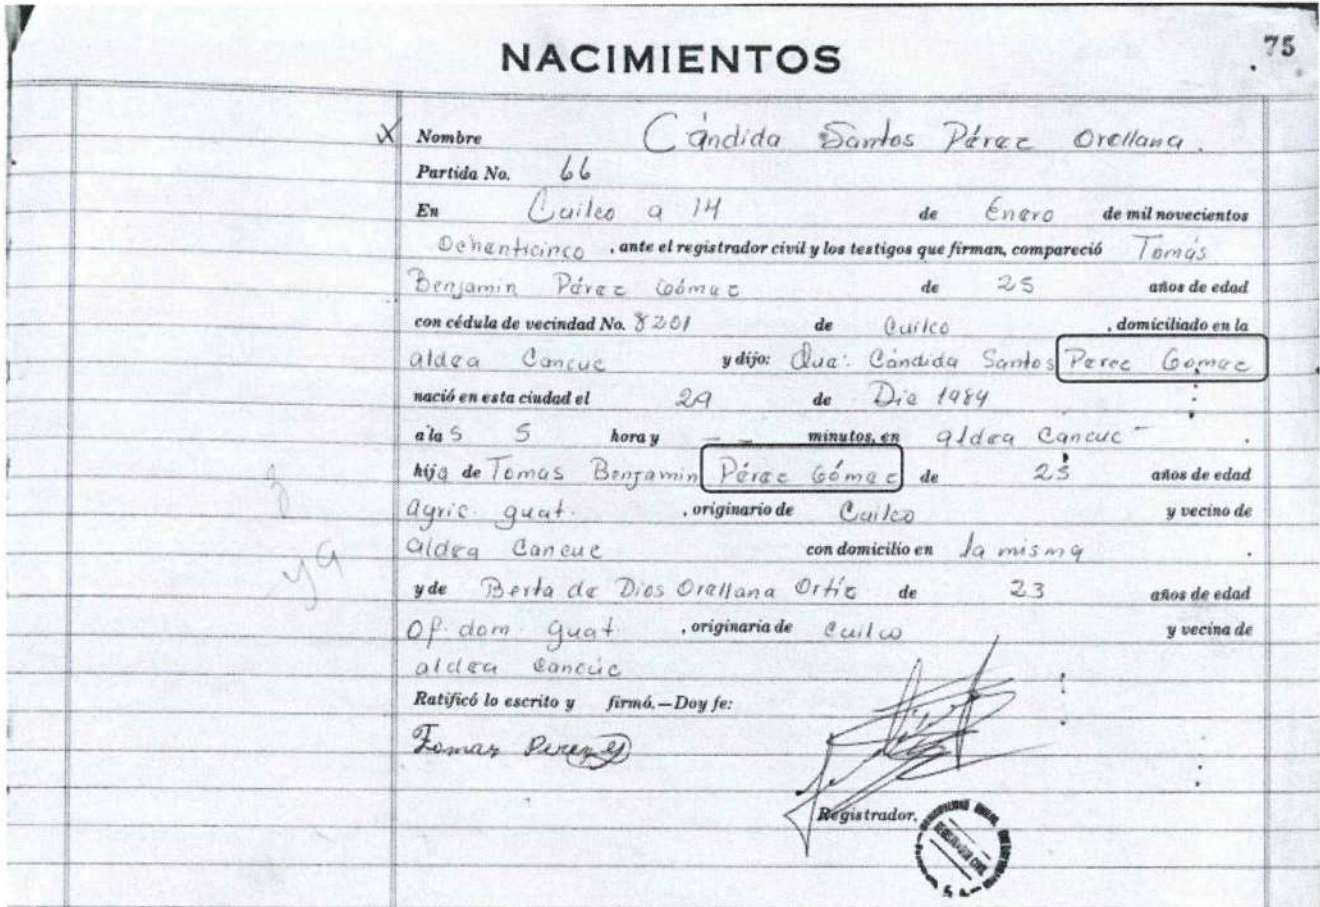 75
NACIMIENTOS
X Nombre Cándida Santos Pérez Orellana.
Partida No. 66
En Cuilco a 14 de Enero de mil novecientos
Ochenticinco, ante el registrador civil y los testigos que firman, compareció Tomás
Benjamin Pérez Gómez de 25 años de edad
con cédula de vecindad No. 8201 de Cuilco, domiciliado en la
aldea Cancuc y dijo: Que: Cándida Santos Perez Gomez
nació en esta ciudad el 29 de Dic 1984
a las 5 hora y -- minutos, en aldea Cancuc
hija de Tomas Benjamin Pérez Gómez de 25 años de edad
agric. guat., originario de Cuilco y vecino de
aldea Cancuc con domicilio en la misma.
y de Berta de Dios Orellana Ortíz de 23 años de edad
Of. dom. guat., originaria de Cuilco y vecina de
aldea Cancúc
Ratificó lo escrito y firmó.—Doy fe:
Tomaz Perez G
Registrador.
ya